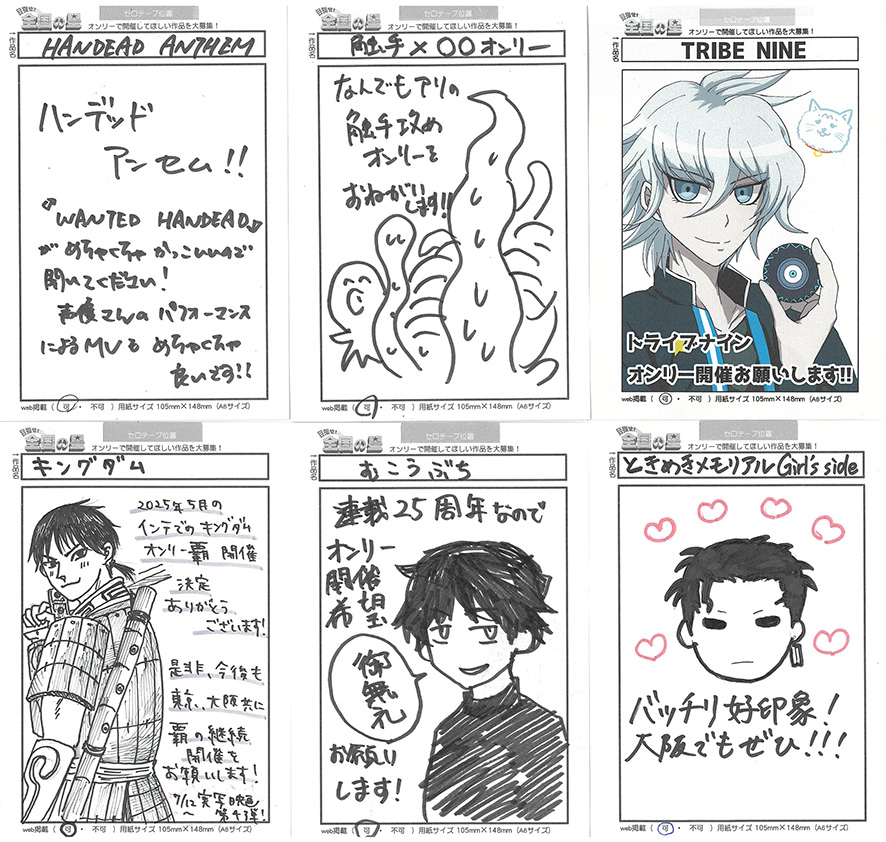 目指せ!
全国の星
セロテープ位置
オンリーで開催してほしい作品を大募集!
作品名
HANDEAD ANTHEM
ハンデッド
アンセム!!
『WANTED HANDEAD』
が めちゃくちゃ かっこいいので
聞いてください!
声優さんの パフォーマンス
によるMVも めちゃくちゃ
良いです!!
web掲載(可・ 不可 )用紙サイズ 105mm×148mm(A6サイズ)
目指せ!
全国の星
セロテープ位置
オンリーで開催してほしい作品を大募集!
作品名
触手×〇〇オンリー
なんでもアリの
触手攻め
オンリーを
おねがい
します!!
web掲載(可・ 不可 )用紙サイズ 105mm×148mm(A6サイズ)
目指せ!
全国の星
セロテープ位置
オンリーで開催してほしい作品を大募集!
作品名
TRIBE NINE
トライブナイン
オンリー開催お願いします!!
web掲載(可・ 不可 )用紙サイズ 105mm×148mm(A6サイズ)
目指せ!
全国の星
セロテープ位置
オンリーで開催してほしい作品を大募集!
作品名
キングダム
2025年5月の
インテでのキングダム
オンリー覇 開催
決定
ありがとう
ございます!
是非、今後も
東京、大阪共に
覇の継続
開催を
お願いします!
7/12 実写映画
~ 第4弾!
web掲載(可・ 不可 )用紙サイズ 105mm×148mm(A6サイズ)
目指せ!
全国の星
セロテープ位置
オンリーで開催してほしい作品を大募集!
作品名
むこうぶち
連載25周年なので
オンリー
開催
希望
御無礼
お願い
します!
web掲載(可・ 不可 )用紙サイズ 105mm×148mm(A6サイズ)
目指せ!
全国の星
セロテープ位置
オンリーで開催してほしい作品を大募集!
作品名
ときめきメモリアル Girl's side
バッチリ好印象!
大阪でもぜひ!!!
web掲載(可・ 不可 )用紙サイズ 105mm×148mm(A6サイズ)